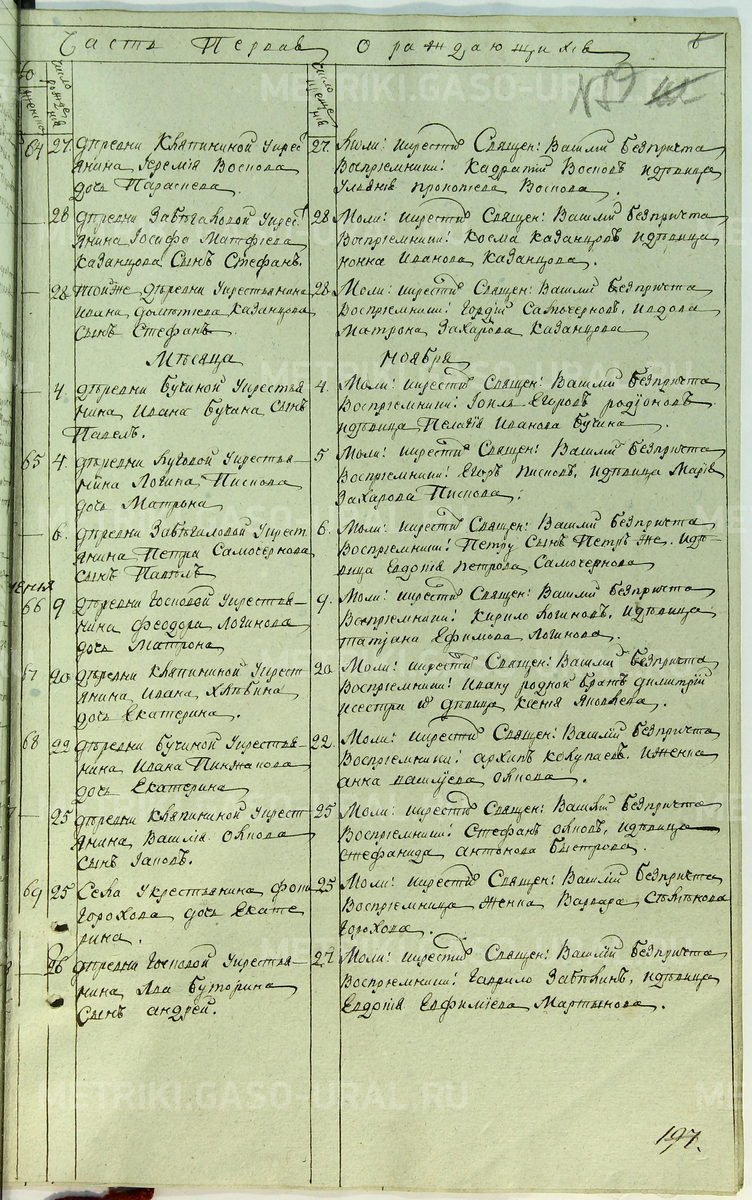 Часть Первая О раждающихся
№ 59
женска
число рождения
число крещения
64 27. деревни Кляпининой укрест
янина Иеремiя Воснова
дочь Параскева.
27. Моли: икрести Священ: Василiй безпричта
Воспрiемники: Кодратiй Восновъ идѣвица
Улянiя прокопiева Воснова.
28 деревни Забѣгаловой укрест
янина Iосифа Матфiева
Казанцова Сынъ Стефанъ.
28 Моли: икрести Священ: Василiй безпричта
Воспрiемники: Косма Казанцовъ идѣвица
нонна Иванова Казанцова.
28 тойже деревни укрестьянина
ивана доментiева Казанцова
Сынъ Стефанъ.
28. Моли: икрести Священ: Василiй безпричта
Воспрiемники: Гордiй Самочерновъ, ивдова
Матрона Захарова Казанцова
Мѣсяца Ноября
4. деревни Бучиной укрестья
нина Ивана Бучина Сынъ
Павелъ.
4. Моли: икрести Священ: Василiй безпричта
Воспрiемники: Iоиль Егоровъ родiоновъ
идѣвица Пелагiя Иванова Бучина.
65 4. деревни Луговой укрестья-
нина Логина Пискова
дочь Матрона
5 Моли: икрести Священ: Василiй безпричта
Воспрiемники: Егоръ Писковъ, идѣвица Марiя
Захарова Пискова.
6. деревни Забѣгаловой укрест
янина Петра Самочернова
Сынъ Павелъ
6. Моли: икрести Священ: Василiй безпричта
Воспрiемники: Петру Сынъ Петръ же. идѣ-
вица Евдотiя петрова Самочернова
66 9 деревни Госповой укрестья-
нина феодора Логинова
дочь Матрона
9. Моли: икрести Священ: Василiй безпричта
Воспрiемники: Кирило Логиновъ, идѣвица
татiана Ефимова Логинова.
67 20 деревни Кляпининой укрест
янина Ивана Хлѣбина
дочь Екатерина.
20. Моли: икрести Священ: Василiй безпричта
Воспрiемники: Ивану родной братъ димитрiй
исестра дѣвица Ксенiя Яковлева.
68 22 деревни Бучиной укрестья-
нина Ивана Пинжакова
дочь Екатерина
22. Моли: икрести Священ: Василiй безпричта
Воспрiемники: архипъ колупаевъ. ижена
анна василiева оянова.
25 деревни Кляпининой укрест
янина Василiя Оянова
Сынъ Iаковъ.
25 Моли: икрести Священ: Василiй безпричта
Воспрiемники: Стефанъ ояновъ, идѣвица
Стефанида антонова быстрова.
69 25 Села укрестьянина фоки
Горохова дочь Екате
рина.
25 Моли: икрести Священ: Василiй безпричта
Воспрiемница Женка Варвара
Горохова.
26 деревни Госповой укрестья-
нина Буторина
Сынъ андрей.
27 Моли: икрести Священ: Василiй безпричта
Воспрiемники: Гаврило Забѣлинъ, идѣвица
Евдотiя Евфимiева Мартынова.
197.
METRIKI.GASO-URAL.RU